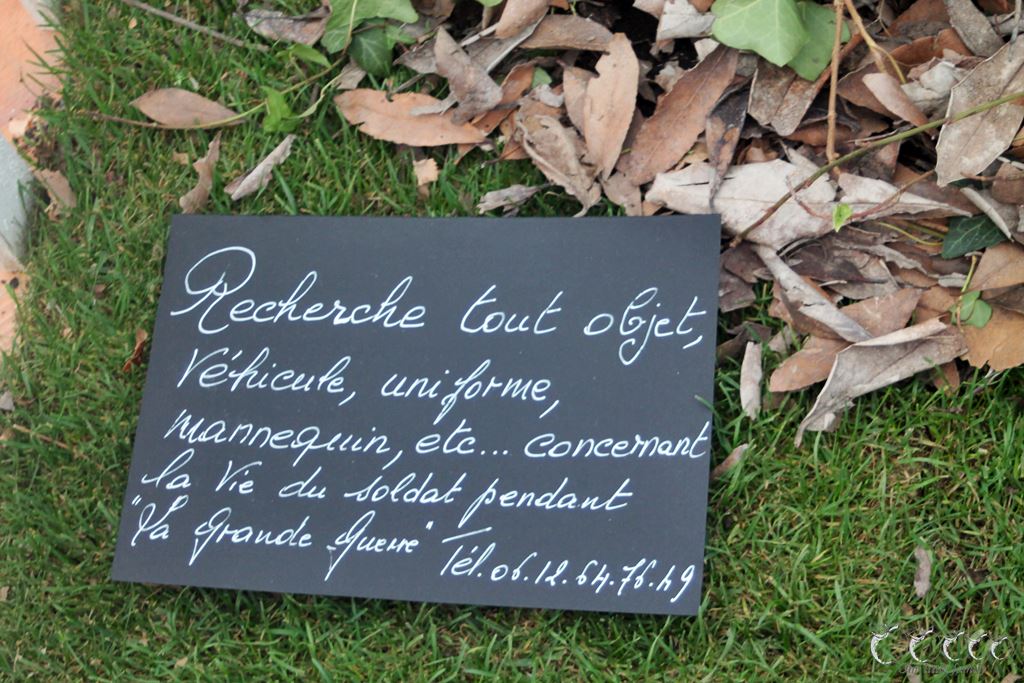 Recherche tout objet,
Véhicule, uniforme,
mannequin, etc... concernant
la Vie du soldat pendant
"la Grande Guerre" — Tél. 06.12.64.76.49